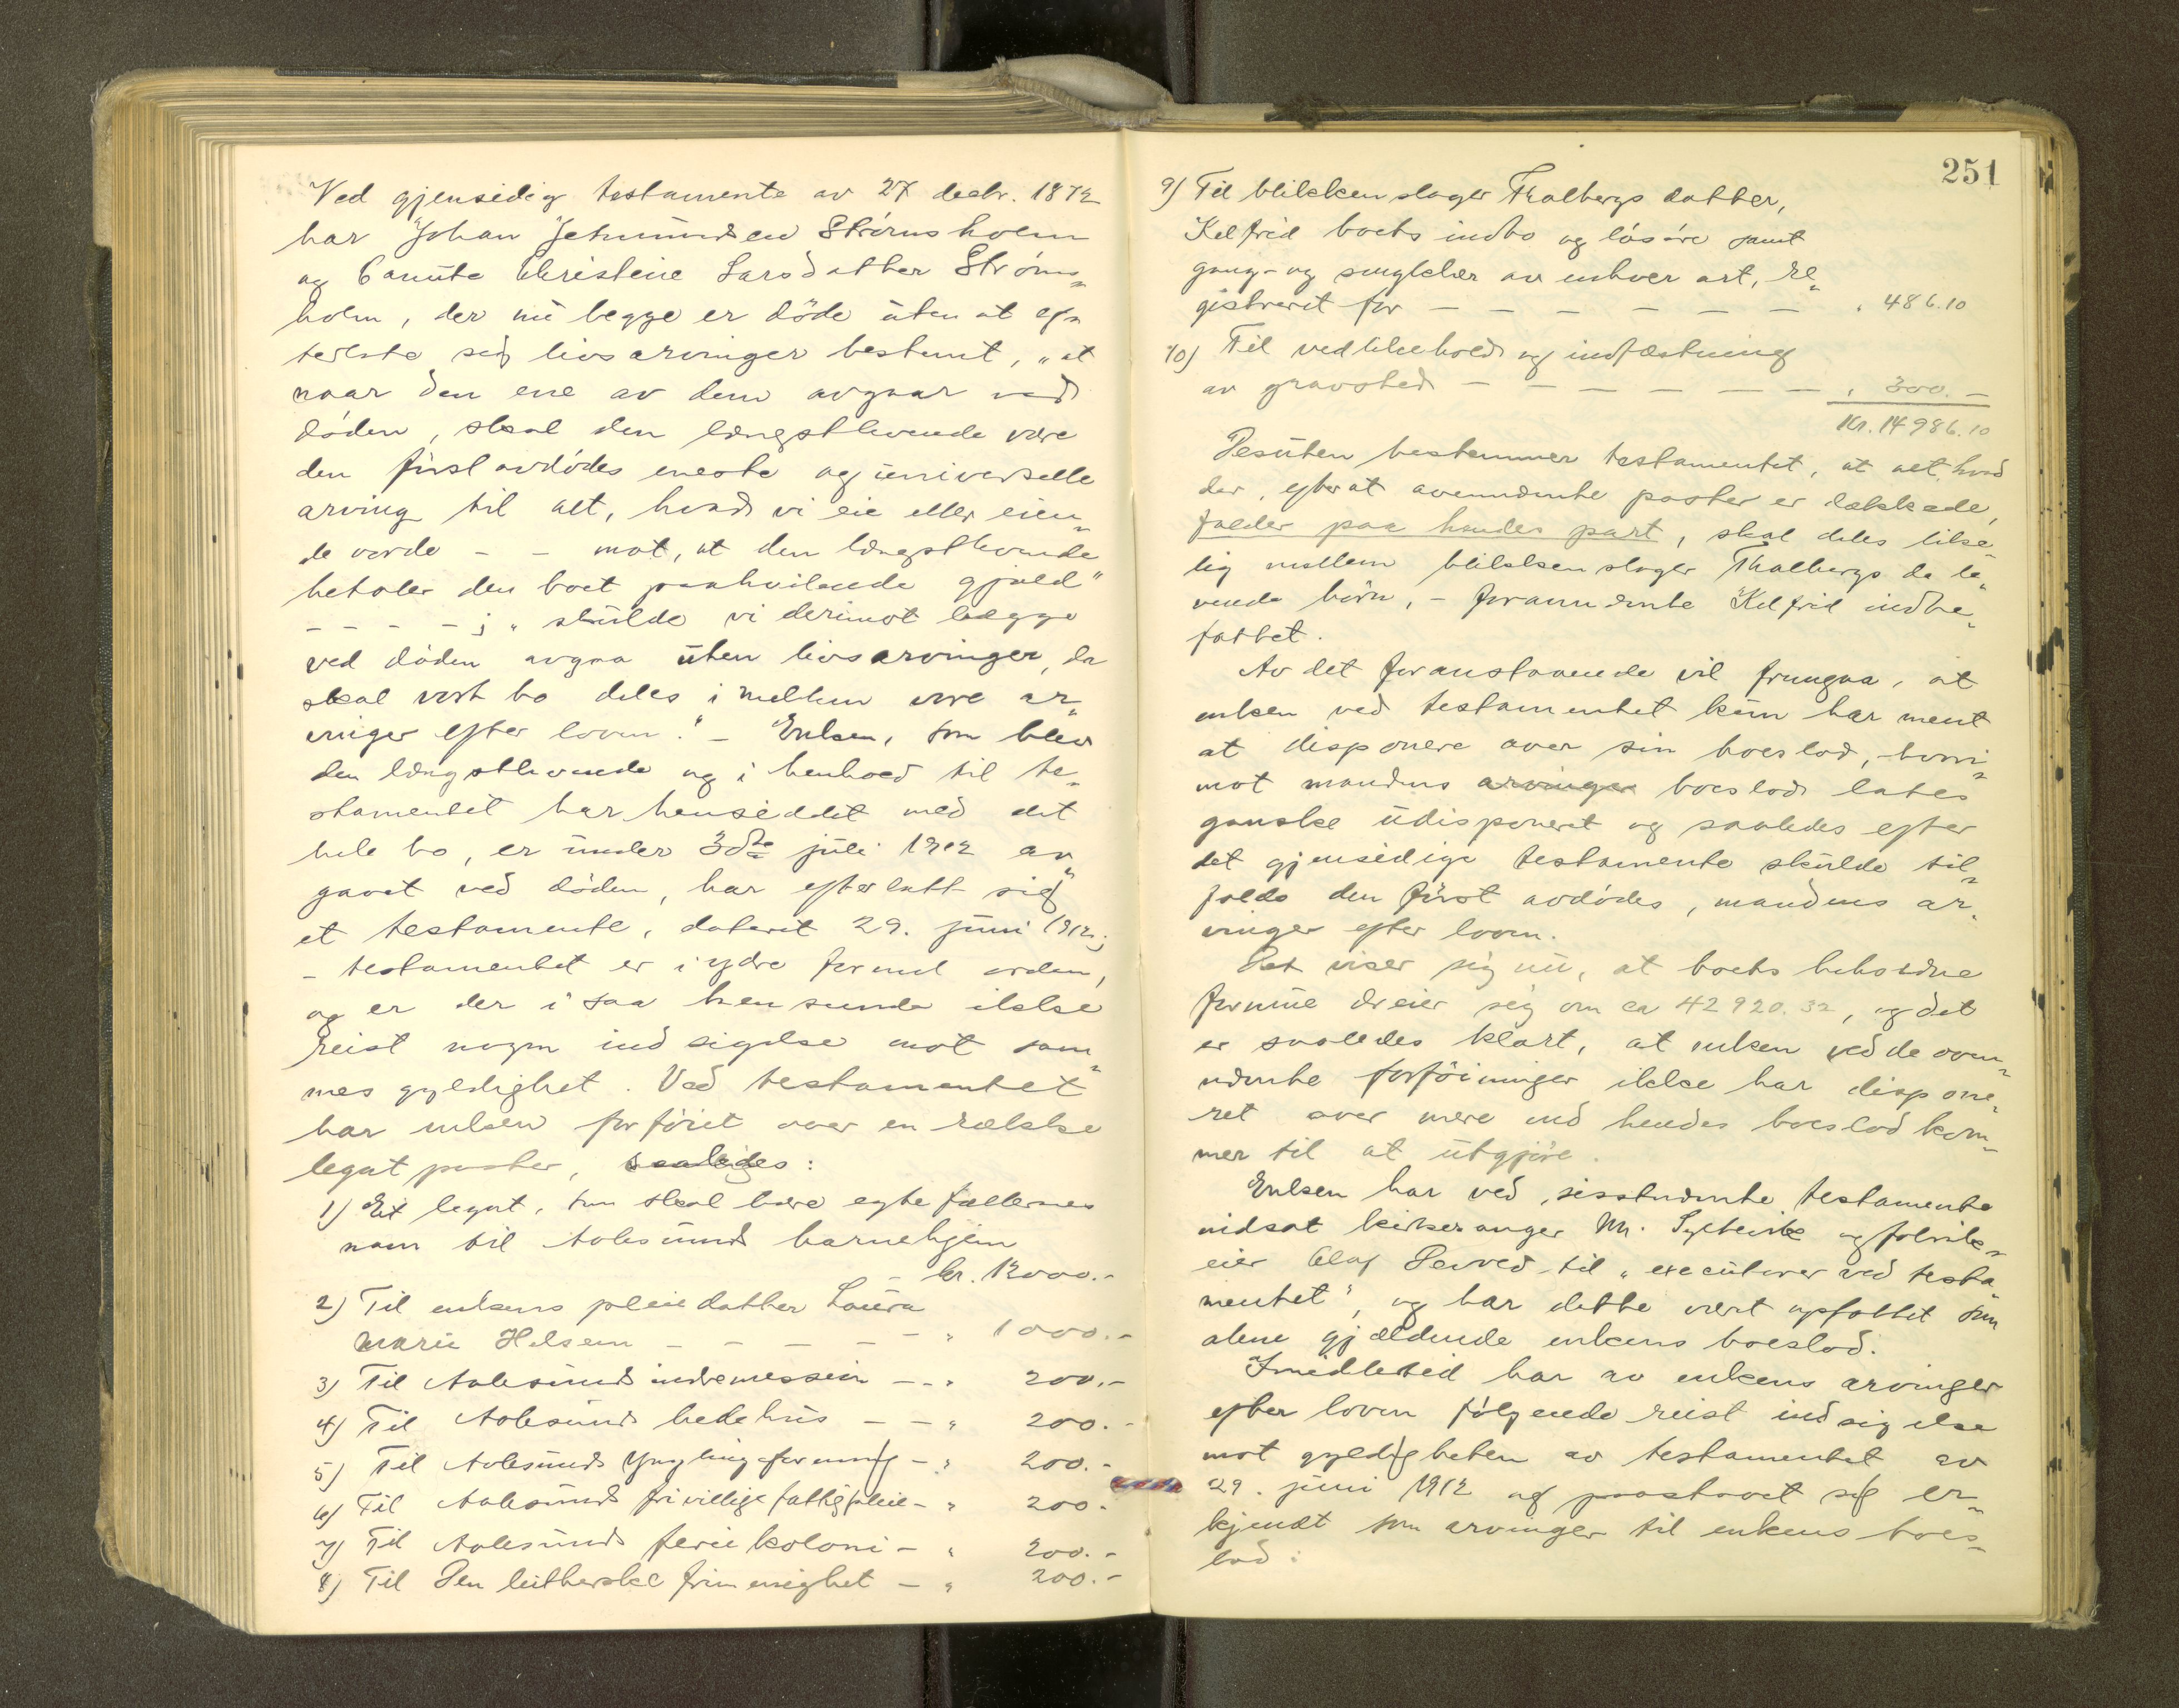 Ved gjensidig testamente av 27 decbr. 1872
har Johan Jetmundsen Strømsholm
og Canute Christine Larsdatter Strøms„
holm, der nu begge er döde uten at ef„
terlate sig livsarvinger bestemt, „at
naar den ene av dem avgaar ved
döden, skal den længstlevende være
den först avdödes eneste og universelle
arving til alt, hvad vi eie eller eien„
de vorde – – mot, at den længstlevende
betaler den boet paahvilende gjæld"
– – – – ; „ skulde vi derimot begge
ved döden avgaa uten livsarvinger, da
skal vort bo deles imellem vore ar„
vinger efter loven." – Enken, som blev
den længstlevende og i henhold til te„
stamentet har hensiddet med det
hele bo, er under 30te juli 1912 av„
gaat ved döden, har efterlatt sig
et testamente, datert 29. juni 1912;
– testamentet er i ydre formel orden,
og er der i saa henseende ikke
reist nogen indsigelse mot sam„
mes gyldighet. Ved testamentet
har enken forföiet over en række
legatposter, saaledes:
1) Et legat, som skal bære egtefællernes
navn til Aalesunds barnehjem
– kr. 12000.-
2) Til enkens pleiedatter Laura
Marie Helsem – – – – – „ 1000.-
3) Til Aalesunds indremission – – „ 200.-
4) Til Aalesunds bedehus – – „ 200.-
5) Til Aalesunds Ynglingeforening – „ 200.-
6) Til Aalesunds frivillige fattigpleie – „ 200.
7) Til Aalesunds feriekoloni – „ 200.-
8) Til Den lutherske frimenighet – „ 200.-
251
9) Til blikkenslager Thalbergs datter,
Kelfrid boets indbo og lösöre samt
gang- og sengklær av enhver art, re„
gistreret for – – – – – – – „ 486.10
10) Til vedlikehold og indfæstning
av gravsted – – – – – – – „ 300.-
Kr. 14986.10
Desuten bestemmer testamentet, at alt, hvad
der, efterat ovennævnte poster er dækkede,
falder paa hendes part, skal deles like„
lig mellem blikkenslager Thalbergs da le„
vende börn, – forannævnte Kelfrid indbe„
fattet.
Av det foranstaaende vil fremgaa, at
enken ved testamentet kun har ment
at disponere over sin boeslod, hvori„
mot mandens arvinger boeslod lates
ganske udisponeret og saaledes efter
det gjensidige testamente skulde til„
falde den först avdödes, mandens ar„
vinger efter loven.
Det viser sig nu, at boets beholdne
formue dreier sig om ca 42920.32, og det
er saaledes klart, at enken ved de oven„
nævnte forföininger ikke har dispone„
ret over mere end hendes boeslod kom„
mer til at utgjöre.
Enken har ved sisstnævnte testamente
indsat kirkesanger M. Syltevik og fabrik„
eier Olaf Devold til „executorer ved testa„
mentet", og har dette vært opfattet som
alene gjældende enkens boeslod.
Imidlertid har av enkens arvinger
efter loven fölgende reist indsigelse
mot gyldigheten av testamentet av
29. juni 1912 og paastaaet sig er„
kjendt som arvinger til enkens boes„
lod: